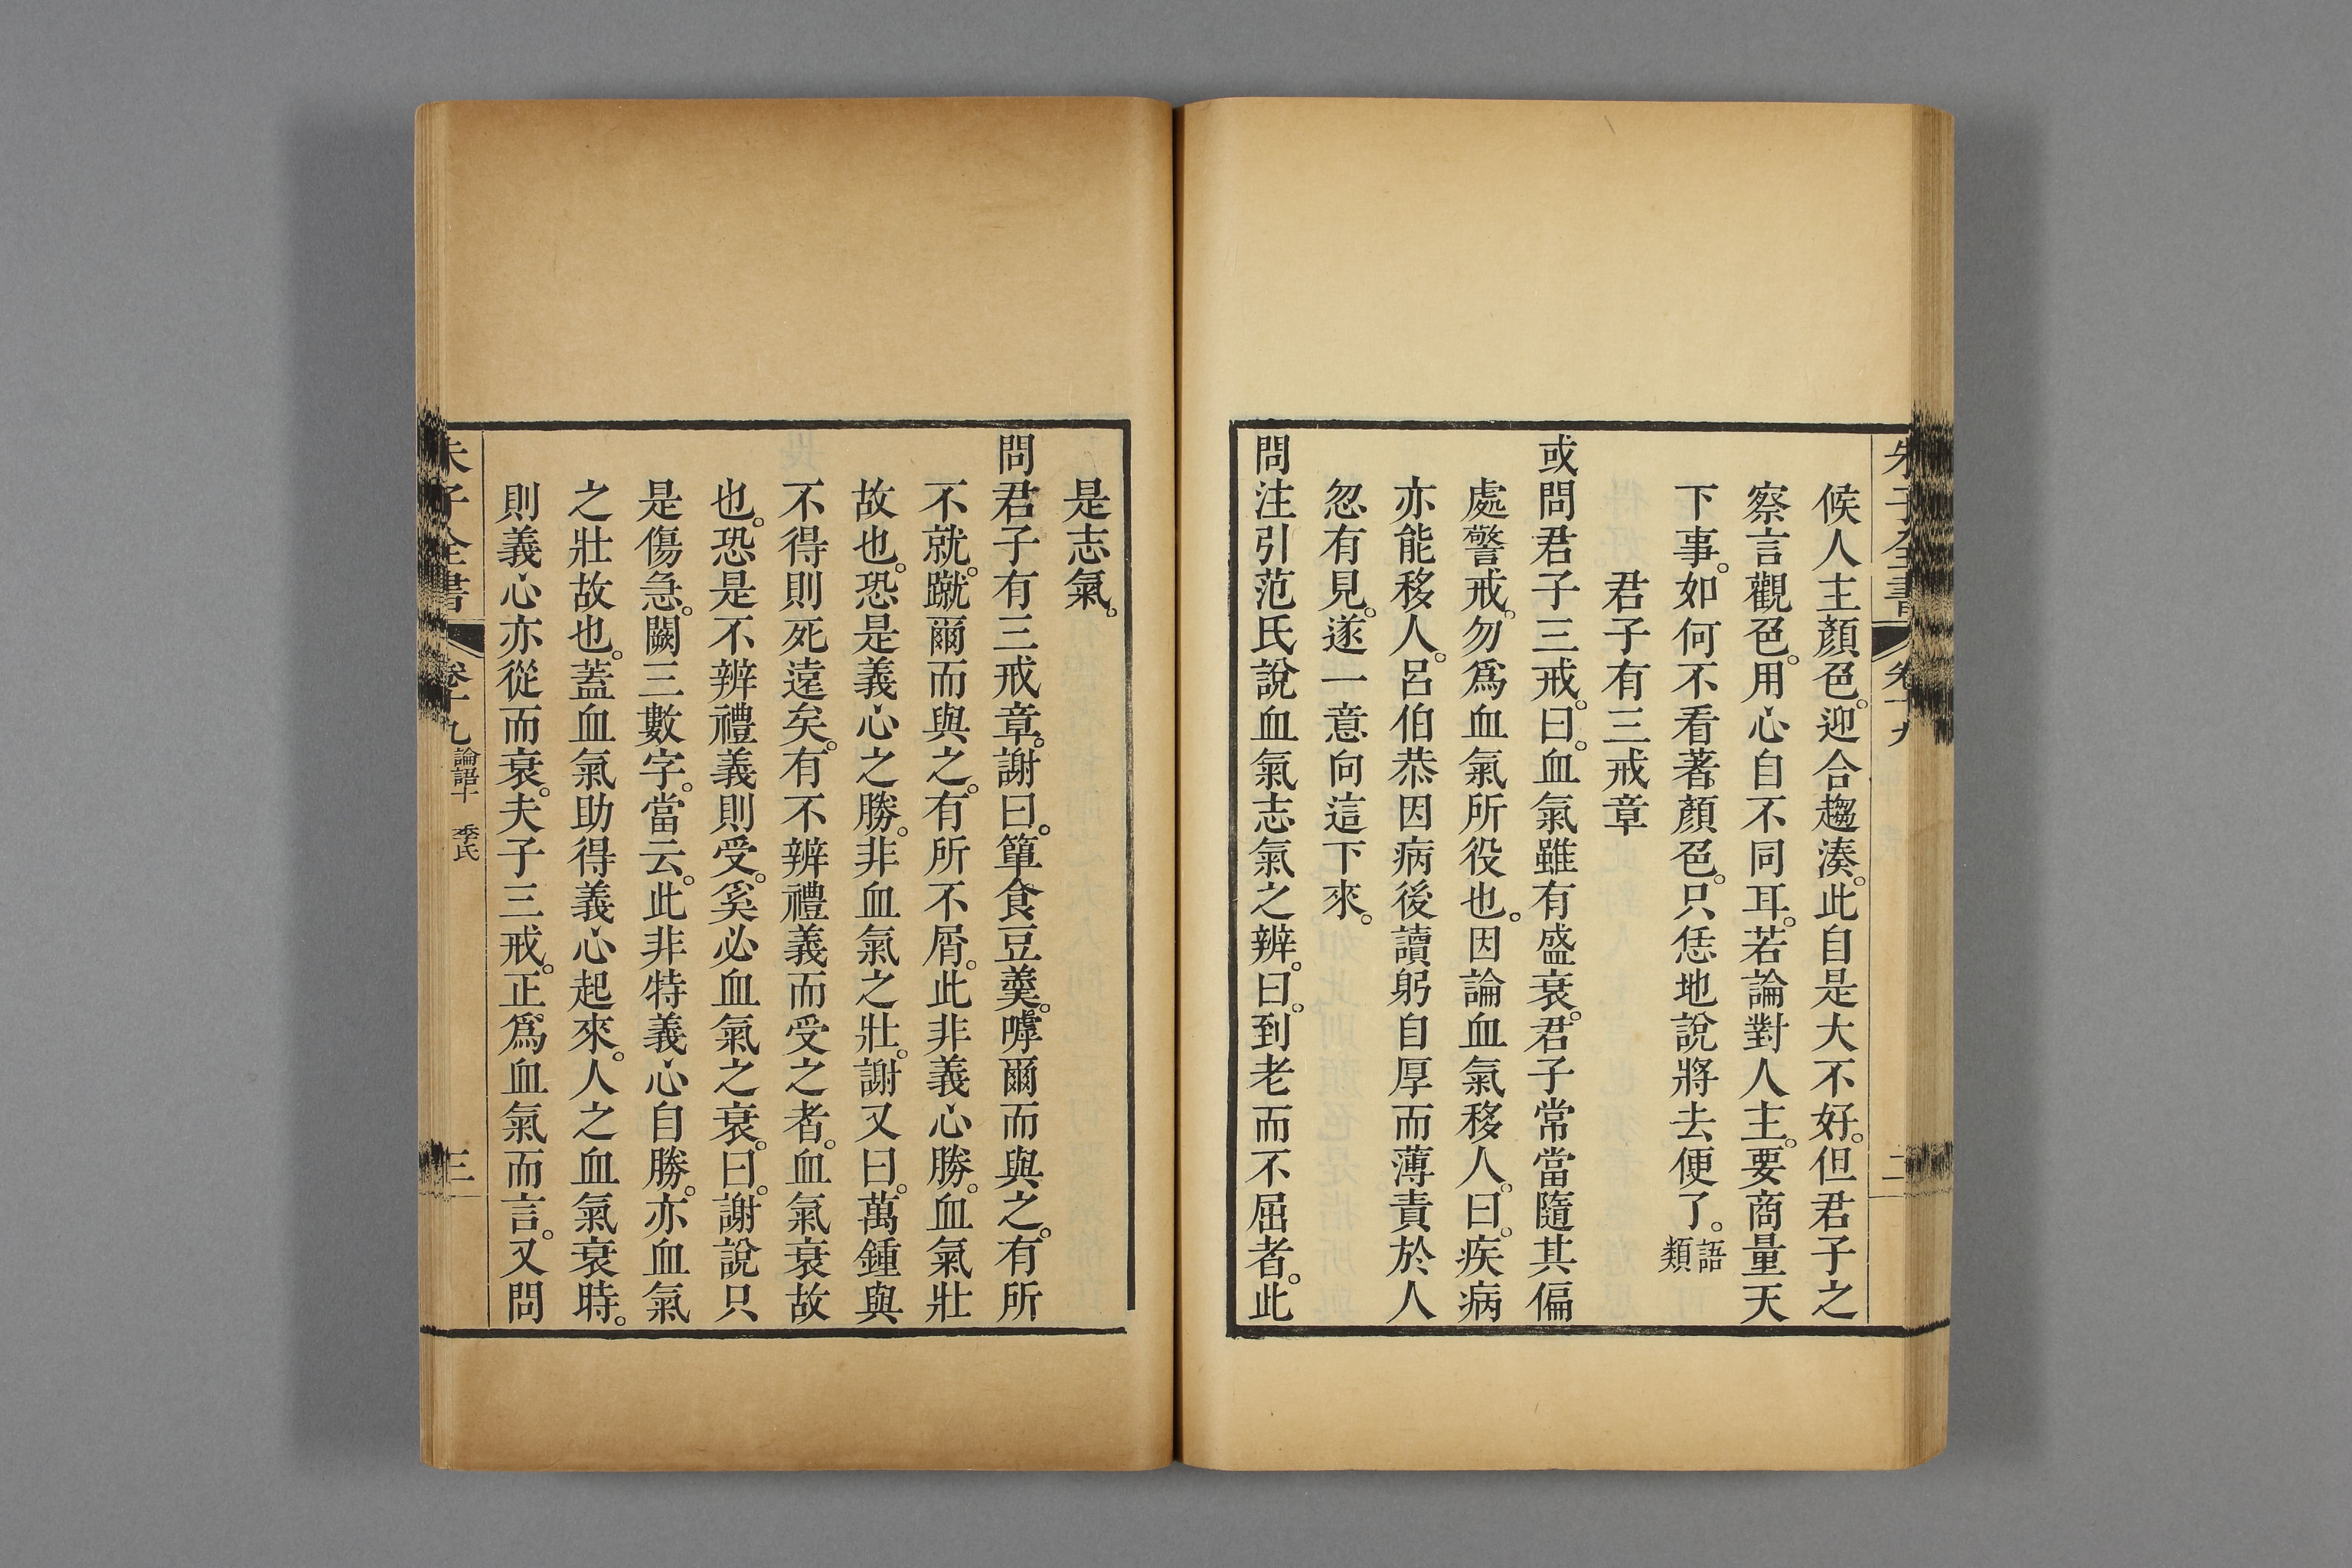 朱子全書 卷十九 二
候人主顏色。迎合趨湊。此自是大不好。但君子之
察言觀色。用心自不同耳。若論對人主。要商量天
下事。如何不看著顏色。只恁地說將去便了。語類
君子有三戒章
或問君子三戒。曰。血氣雖有盛衰。君子常當隨其偏
處警戒。勿爲血氣所役也。因論血氣移人。曰。疾病
亦能移人。呂伯恭因病後讀躬自厚而薄責於人
忽有見。遂一意向這下來。
問注引范氏說血氣志氣之辨。曰。到老而不屈者。此
是志氣。
問君子有三戒章。謝曰。簞食豆羹。嘑爾而與之。有所
不就。蹴爾而與之。有所不屑。此非義心勝。血氣壯
故也。恐是義心之勝。非血氣之壯。謝又曰。萬鍾與
不得則死遠矣。有不辨禮義而受之者。血氣衰故
也。恐是不辨禮義則受。奚必血氣之衰。曰。謝說只
是傷急。闕三數字。當云。此非特義心自勝。亦血氣
之壯故也。蓋血氣助得義心起來。人之血氣衰時。
則義心亦從而衰。夫子三戒。正爲血氣而言。又問
朱子全書 卷十九 論語十 季氏 三